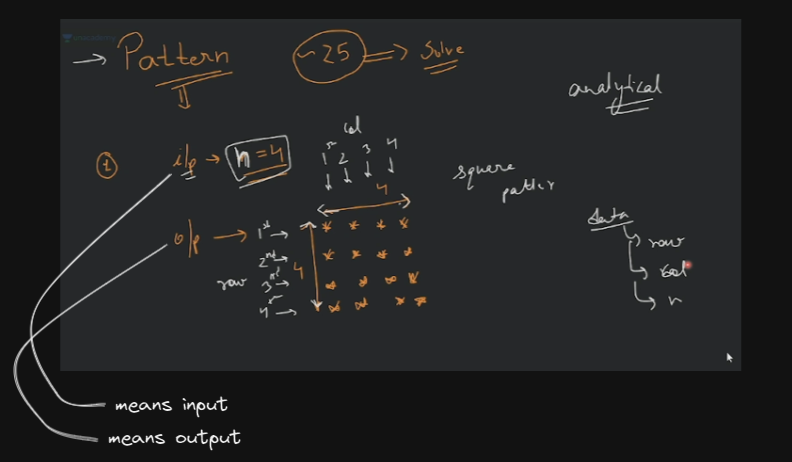 → Pattern ~25 ⇒ Solve
analytical
① i/p → n = 4
col
1st 2 3 4
4
square
patter
o/p →
row 4
1st → * * * *
2nd → * * * *
3rd → * * * *
4th → * * * *
data
row
col
n
means input
means output